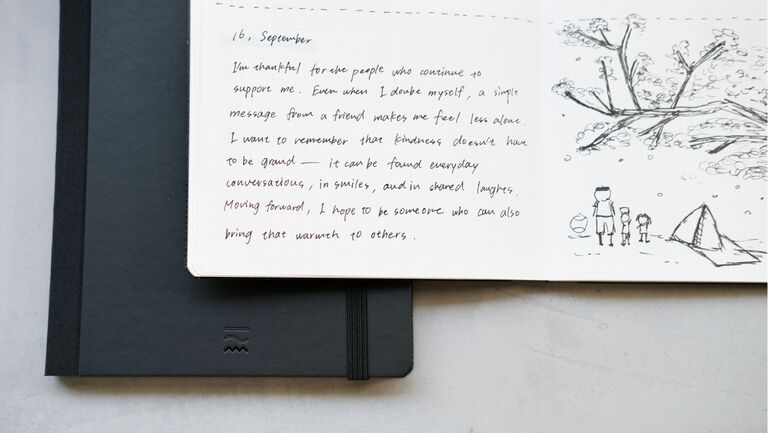 16, September
I'm thankful for the people who continue to
support me. Even when I doubt myself, a simple
message from a friend makes me feel less alone.
I want to remember that kindness doesn't have
to be grand — it can be found everyday
conversations, in smiles, and in shared laughs.
Moving forward, I hope to be someone who can also
bring that warmth to others.